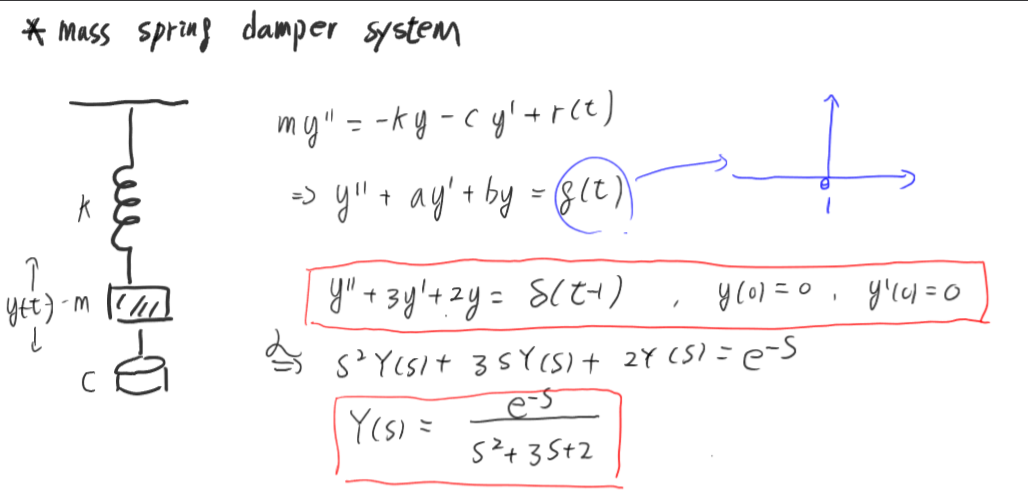 * mass spring damper system
my'' = -ky - cy' + r(t)
k
⇒ y'' + ay' + by = g(t)
1
y(t) - m
y'' + 3y' + 2y = δ(t-1) , y(0) = 0 , y'(0) = 0
ℒ ⇒ s²Y(s) + 3sY(s) + 2Y(s) = e^-s
c
Y(s) = e^-s / s² + 3s + 2